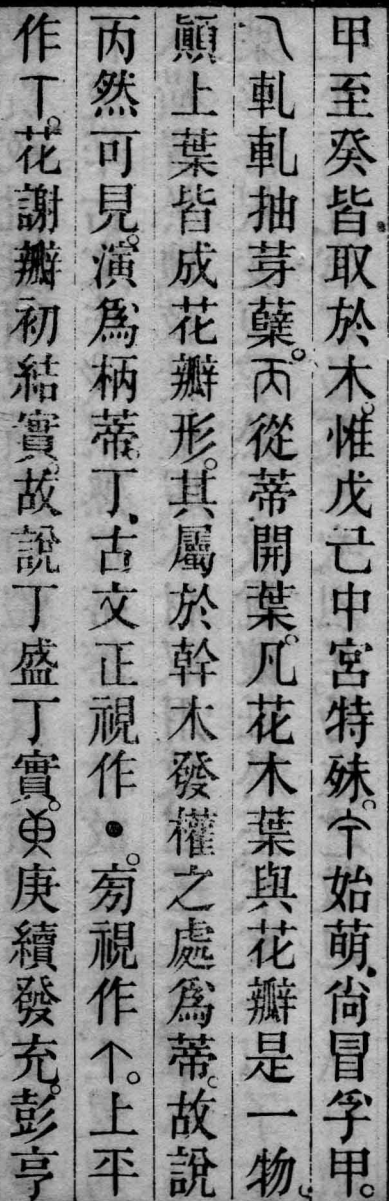 甲至癸皆取於木。惟戊己中宮特殊。𠇚始萌。尙冒孚甲。
乀軋軋抽芽櫱。丙從蒂開葉。凡花木葉與花瓣是一物。
顚上葉皆成花瓣形。其屬於幹木發權之處爲蒂。故說
丙然可見。演爲柄蒂。丁、古文正視作●。㫄視作个。上平
作丅。花謝瓣初結實。故說丁盛丁實。庚續發充。彭亨